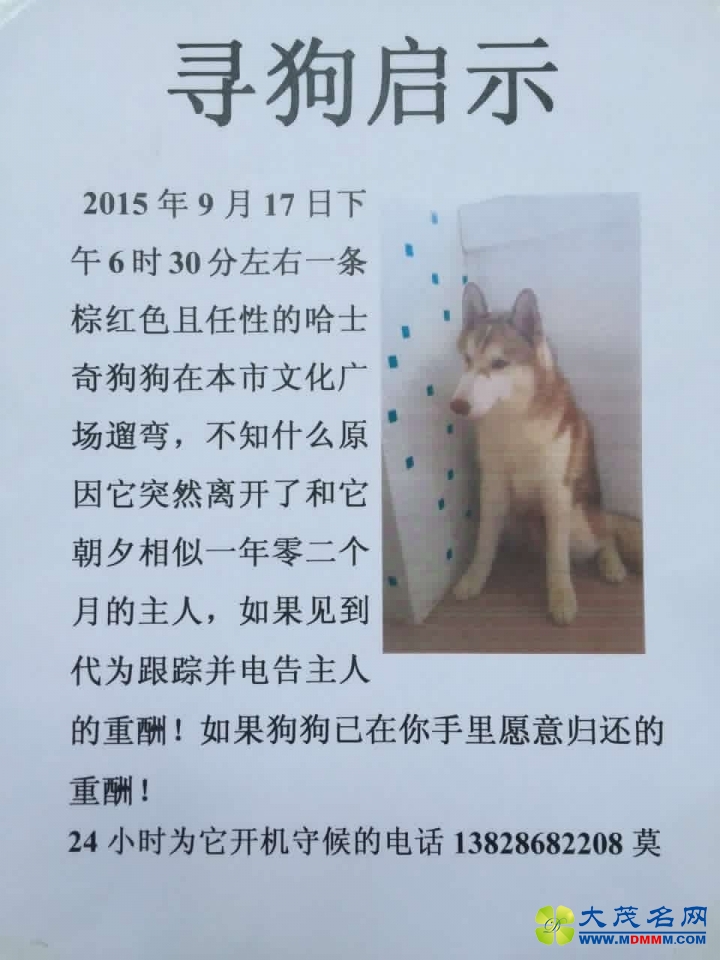 寻狗启示
2015年9月17日下
午6时30分左右一条
棕红色且任性的哈士
奇狗狗在本市文化广
场遛弯，不知什么原
因它突然离开了和它
朝夕相似一年零二个
月的主人，如果见到
代为跟踪并电告主人
的重酬！如果狗狗已在你手里愿意归还的
重酬！
24小时为它开机守候的电话13828682208莫
大茂名网
WWW.MDMMM.COM